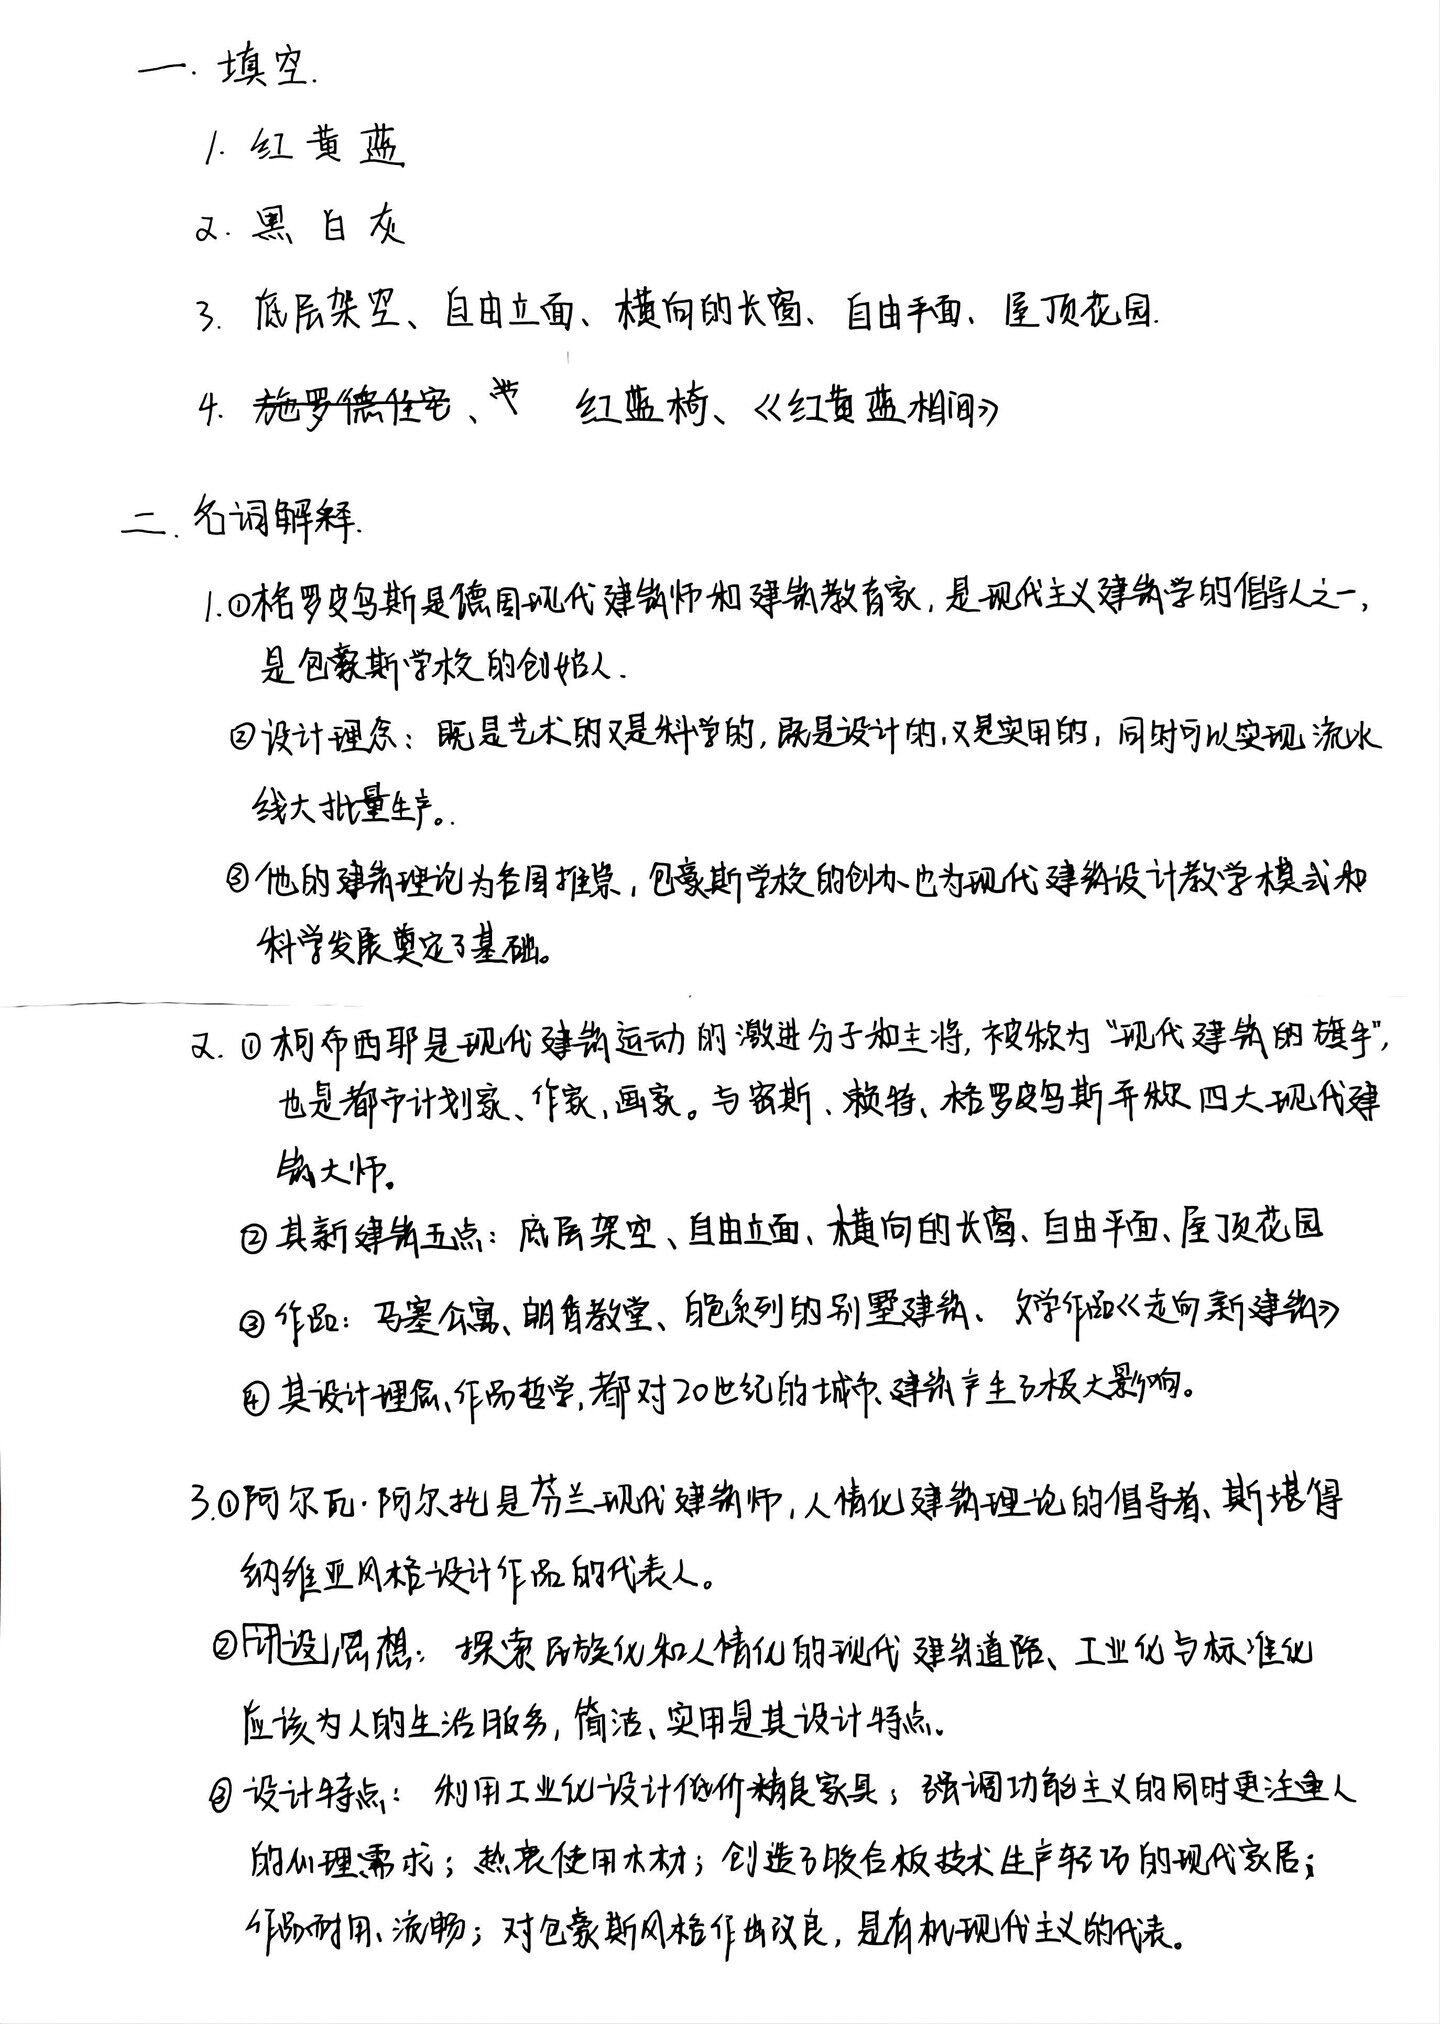 一. 填空.
1. 红 黄 蓝
2. 黑 白 灰
3. 底层架空、自由立面、横向的长窗、自由平面、屋顶花园.
4. 施罗德住宅、 红蓝椅、《红黄蓝相间》
二. 名词解释.
1.①格罗皮乌斯是德国现代建筑师和建筑教育家,是现代主义建筑学的倡导人之一,
是包豪斯学校的创始人.
②设计理念:既是艺术的又是科学的,既是设计的,又是实用的,同时可以实现流水
线大批量生产。.
③他的建筑理论为各国推崇,包豪斯学校的创办也为现代建筑设计教学模式和
科学发展奠定了基础。
2. ①柯布西耶是现代建筑运动的激进分子和主将,被称为“现代建筑的旗手”,
也是都市计划家、作家,画家。与密斯、赖特、格罗皮乌斯并称四大现代建
筑大师。
②其新建筑五点:底层架空、自由立面、横向的长窗、自由平面、屋顶花园
③作品:马塞公寓、朗香教堂、白色系列的别墅建筑、文学作品《走向新建筑》
④其设计理念、作品哲学,都对20世纪的城市、建筑产生了极大影响。
3.①阿尔瓦·阿尔托是芬兰现代建筑师,人情化建筑理论的倡导者、斯堪得
纳维亚风格设计作品的代表人。
②设思想:探索民族化和人情化的现代建筑道路、工业化与标准化
应该为人的生活服务,简洁、实用是其设计特点。
③设计特点:利用工业化设计低价精良家具;强调功能主义的同时更注重人
的心理需求;热衷使用木材;创造了胶合板技术生产轻巧的现代家居;
作品耐用、流畅;对包豪斯风格作出改良,是有机现代主义的代表。